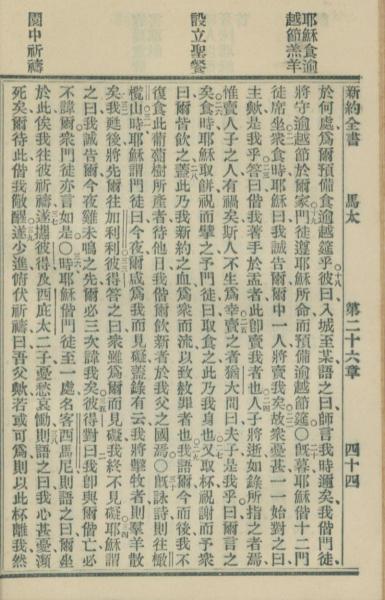 新約全書　馬太　第二十六章　四十四
耶穌食逾
越節羔羊
設立聖餐
園中祈禱
於何處爲爾預備食逾越筵乎彼曰入城至某語之曰師言我時邇矣我偕門徒
將守逾越節於爾家門徒遵耶穌所命而預備逾越節筵○既暮耶穌偕十二門
徒席坐衆食時耶穌曰我誠告爾爾中一人將賣我矣故衆憂甚一一始對之曰
主歟是我乎答曰偕我著手於盂者此卽賣我者也人子將逝如錄所指之者焉
惟賣人子之人有禍矣斯人不生爲幸賣之者猶大問曰夫子是我乎曰爾言之
矣食時耶穌取餅祝而擘之予門徒曰取食之此乃我身也又取杯祝謝而予衆
曰爾皆飲之蓋此乃我新約之血爲衆而流以致赦罪者也我語爾今而後我不
復食此葡萄樹所產者待他日我偕爾飲新者於我父之國焉○既詠詩則往橄
欖山時耶穌謂門徒曰今夜爾咸爲我而見礙蓋錄有云我將擊牧者則羣羊散
矣我甦後將先爾往加利利彼得答之曰衆雖爲爾而見礙我終不見礙耶穌謂
之曰我誠告爾今夜雞未鳴之先爾必三次諱我矣彼得對曰我卽與爾偕亡必
不諱爾衆門徒亦言如是○時耶穌偕門徒至一處名客西馬尼則語之曰爾坐
於此俟我往彼祈禱遂攜彼得及西庇太二子憂愁哀慟則語之曰我心甚憂瀕
死矣爾待此偕我儆醒遂少進俯伏祈禱曰吾父歟若或可爲則以此杯離我然